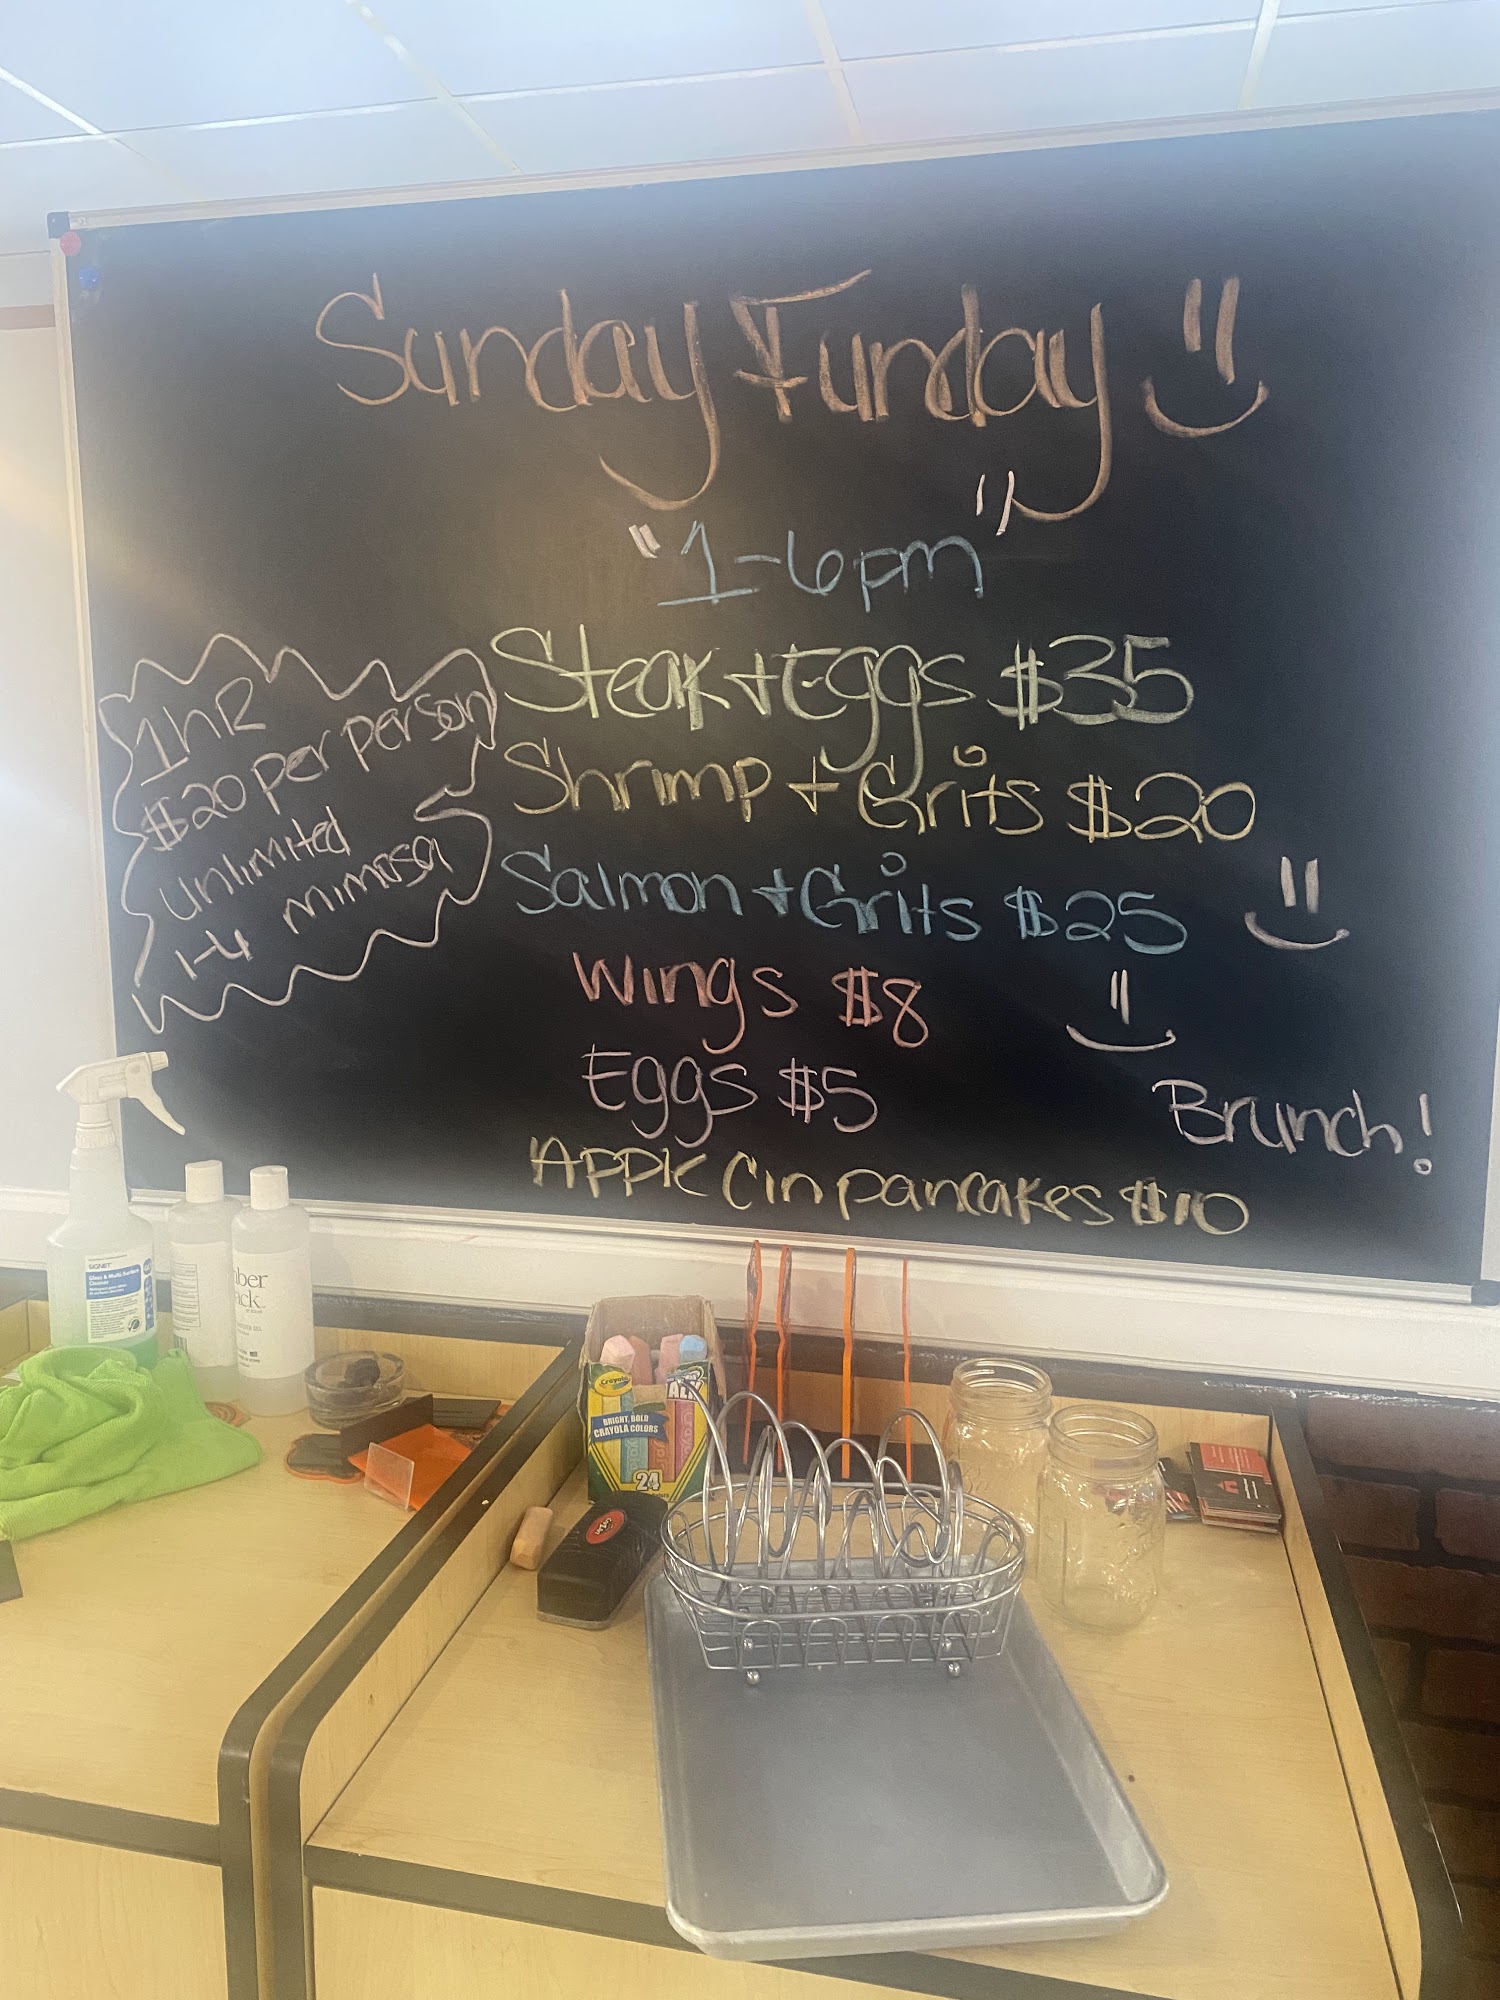 Sunday Funday
"1-6pm"
1hR
$20 per person
unlimited
mimosa
1-4
Steak + Eggs $35
Shrimp + Grits $20
Salmon + Grits $25
Wings $8
Eggs $5
Apple Cin pancakes $10
Brunch!
SIGNET
Glass & Multi-Surface
Cleaner
Crayola
BRIGHT, BOLD
CRAYOLA COLORS
24